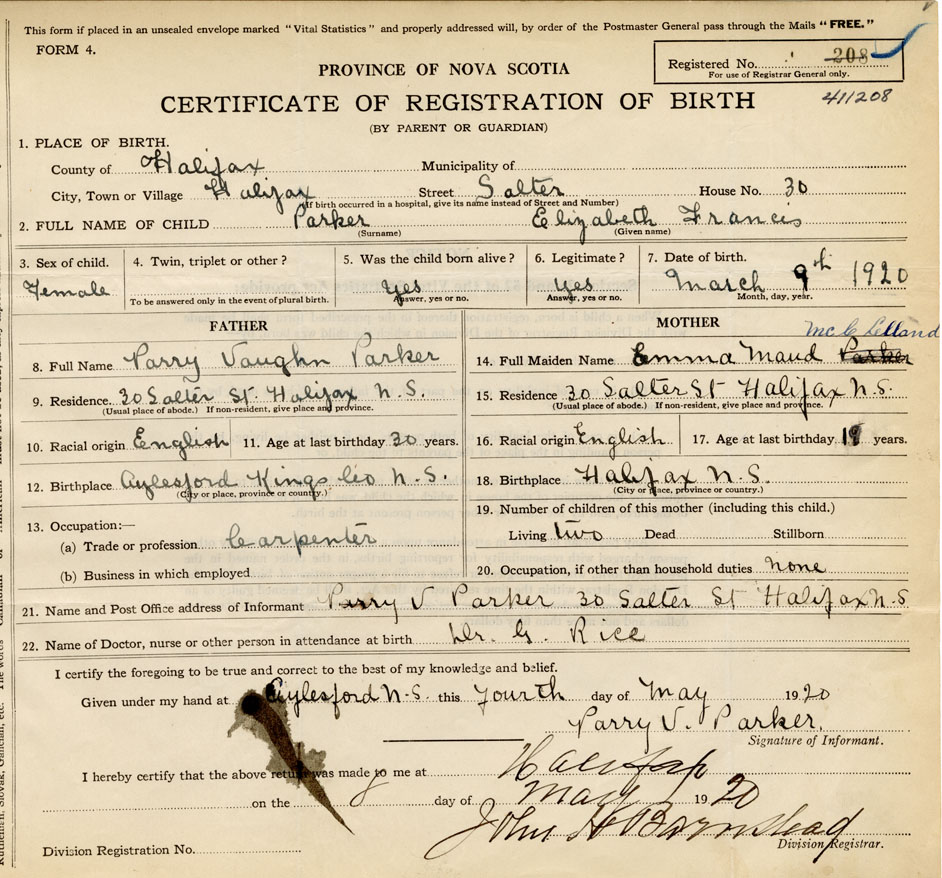 This form if placed in an unsealed envelope marked "Vital Statistics" and properly addressed will, by order of the Postmaster General pass through the Mails "FREE."
FORM 4.
Registered No. 208
For use of Registrar General only.
PROVINCE OF NOVA SCOTIA
CERTIFICATE OF REGISTRATION OF BIRTH
411208
(BY PARENT OR GUARDIAN)
1. PLACE OF BIRTH.
County of Halifax Municipality of
City, Town or Village Halifax Street Salter House No. 30
(If birth occurred in a hospital, give its name instead of Street and Number)
2. FULL NAME OF CHILD Parker Elizabeth Francis
(Surname) (Given name)
3. Sex of child. 4. Twin, triplet or other? 5. Was the child born alive? 6. Legitimate? 7. Date of birth.
Female yes yes March 9th 1920
To be answered only in the event of plural birth. Answer, yes or no. Answer, yes or no. Month, day, year.
FATHER
8. Full Name Parry Vaughn Parker
9. Residence. 30 Salter St. Halifax N.S.
(Usual place of abode.) If non-resident, give place and province.
10. Racial origin English 11. Age at last birthday 30 years.
12. Birthplace Aylesford Kings Co N.S.
(City or place, province or country.)
13. Occupation:—
(a) Trade or profession Carpenter
(b) Business in which employed
MOTHER
McClelland
14. Full Maiden Name Emma Maud Parker
15. Residence 30 Salter St Halifax N.S.
(Usual place of abode.) If non-resident, give place and province.
16. Racial origin English 17. Age at last birthday 19 years.
18. Birthplace Halifax N.S.
(City or place, province or country.)
19. Number of children of this mother (including this child.)
Living two Dead Stillborn
20. Occupation, if other than household duties none
21. Name and Post Office address of Informant Parry V Parker 30 Salter St Halifax N.S
22. Name of Doctor, nurse or other person in attendance at birth Dr. G. Rice
I certify the foregoing to be true and correct to the best of my knowledge and belief.
Given under my hand at Aylesford N.S. this Fourth day of May 1920
Parry V. Parker.
Signature of Informant.
I hereby certify that the above return was made to me at Halifax
on the day of May 1920
John H Barnstead
Division Registrar.
Division Registration No.